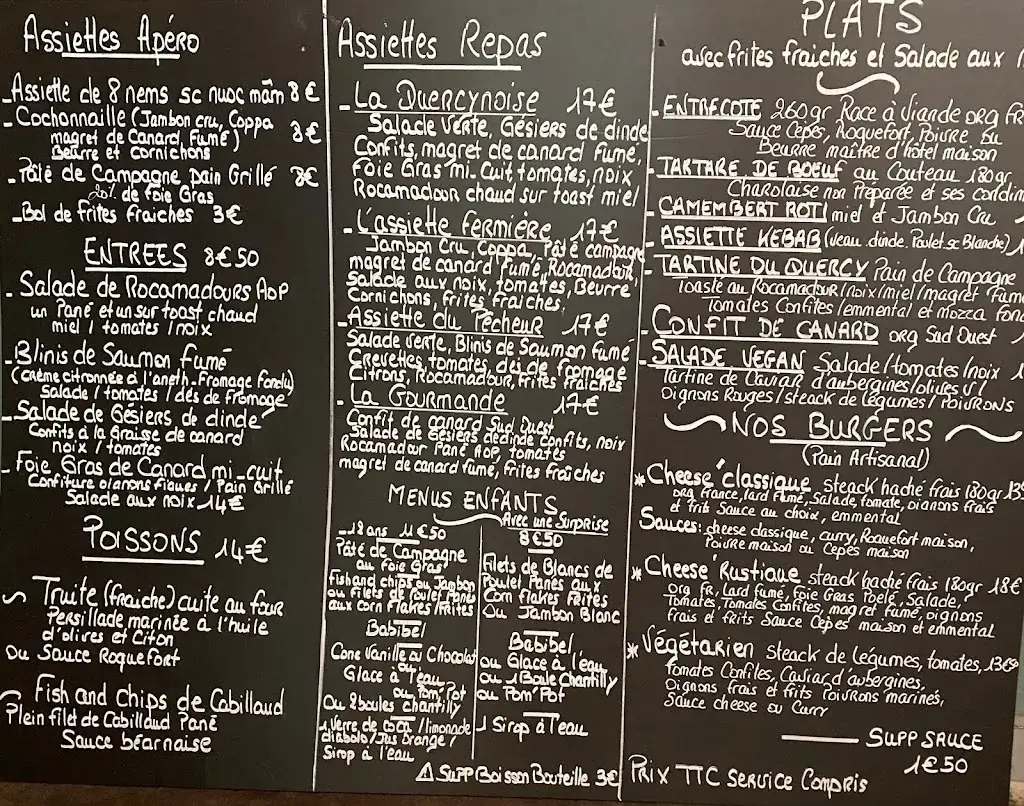 Assiettes Apéro
- Assiette de 8 nems sc nuoc mâm 8€
- Cochonnaille (Jambon cru, Coppa 8€
magret de Canard, Fumé)
Beurre et Cornichons
- Pâté de Campagne pain Grillé 8€
20% de foie Gras
- Bol de frites Fraiches 3€
ENTREES 8€50
- Salade de Rocamadours AOP
un Pané et un sur toast chaud
miel / tomates / noix
- Blinis de Saumon fumé
(crème citronnée à l'aneth - Fromage fondu)
Salade / tomates / dés de fromage
- Salade de Gésiers de dinde
Confits à la Graisse de canard
noix / tomates
- Foie Gras de Canard mi-cuit
Confiture oignons Figues / Pain Grillé
Salade aux noix 14€
POISSONS 14€
~ Truite (fraiche) cuite au four
Persillade marinée à l'huile
d'olives et Citron
Ou Sauce Roquefort
~ Fish and Chips de Cabillaud
Plein filet de Cabillaud Pané
Sauce béarnaise
Assiettes Repas
- La Quercynoise 17€
Salade verte, Gésiers de dinde
Confits, magret de canard fumé,
Foie Gras mi-Cuit, tomates, noix
Rocamadour chaud sur toast miel
- L'assiette fermière 17€
Jambon Cru, Coppa, Pâté campagne
magret de canard fumé, Rocamadour,
Salade aux noix, tomates, Beurre
Cornichons, frites fraiches,
- Assiette du Pêcheur 17€
Salade verte, Blinis de Saumon fumé
Crevettes, tomates, dés de fromage
Citrons, Rocamadour, Frites Fraîches
- La Gourmande 17€
Confit de canard Sud Ouest
Salade de Gésiers de dinde confits, noix
Rocamadour Pané AOP, tomates
magret de canard fumé, frites fraîches
MENUS ENFANTS
Avec une Surprise
- 12 ans 11€50
Pâté de Campagne
au Foie Gras
Fish and chips ou Jambon
ou Filets de Poulet Panés
aux Corn Flakes / Frites
Babibel
Cone Vanille ou Chocolat
ou
Glace à l'eau
ou Pom'Pot
Ou 2 boules chantilly
1 Verre de coca / limonade
diabolo / Jus orange /
Sirop à l'eau
8€50
Filets de Blancs de
Poulet Panés aux
Corn Flakes Frites
Ou Jambon Blanc
Babibel
ou Glace à l'eau
ou 1 Boule Chantilly
ou Pom'Pot
1 Sirop à l'eau
⚠ Supp Boisson Bouteille 3€
PLATS
avec frites fraiches et Salade aux
- ENTRECOTE 260gr Race à Viande ORG FR
Sauce Cèpes, Roquefort, Poivre ou
Beurre maître d'hôtel maison
- TARTARE DE BOEUF au Couteau 180gr
Charolaise non Préparée et ses
- CAMEMBERT ROTI miel et Jambon Cru
- ASSIETTE KEBAB (Veau.dinde.Poulet sc Blanche)
- TARTINE DU QUERCY Pain de Campagne
Toasté au Rocamadour / noix / miel / magret
Tomates Confites / emmental et mozza
- CONFIT DE CANARD ORG Sud Ouest
- SALADE VEGAN Salade / tomates / noix
Tartine de Caviar d'aubergines / olives v. /
Oignons Rouges / steack de légumes / POIVRONS
~ NOS BURGERS ~
(Pain Artisanal)
* Cheese classique steack haché frais 180gr
ORG France, lard Fumé, Salade, tomate, oignons frais
et frits Sauce au choix, emmental
Sauces: cheese classique, curry, Roquefort maison,
Poivre maison ou Cèpes maison
* Cheese Rustique steack haché frais 180gr 18€
ORG FR, lard fumé, foie Gras Poélé, Salade,
Tomates, Tomates Confites, magret fumé, oignons
frais et frits Sauce Cèpes maison et emmental
* Végétarien steack de légumes, tomates, 13€50
Tomates Confites, Caviar d'aubergines,
Oignons frais et frits Poivrons marinés,
Sauce cheese ou Curry
SUPP SAUCE
1€50
PRIX TTC SERVICE COMPRIS